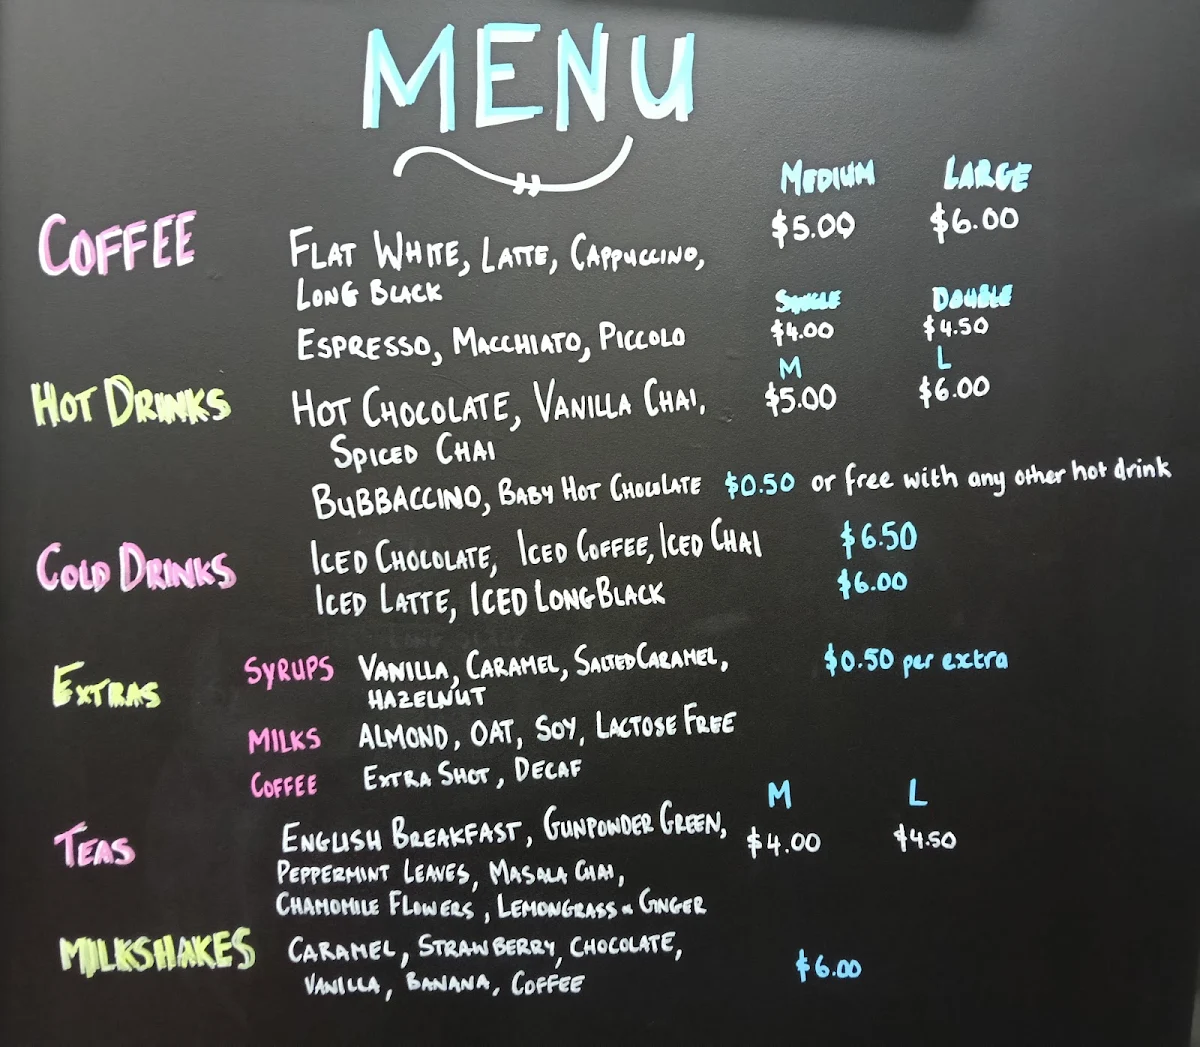 MENU
MEDIUM LARGE
COFFEE FLAT WHITE, LATTE, CAPPUCCINO, $5.00 $6.00
LONG BLACK
SINGLE DOUBLE
ESPRESSO, MACCHIATO, PICCOLO $4.00 $4.50
M L
HOT DRINKS HOT CHOCOLATE, VANILLA CHAI, $5.00 $6.00
SPICED CHAI
BUBBACCINO, BABY HOT CHOCOLATE $0.50 or free with any other hot drink
COLD DRINKS ICED CHOCOLATE, ICED COFFEE, ICED CHAI $6.50
ICED LATTE, ICED LONG BLACK $6.00
EXTRAS SYRUPS VANILLA, CARAMEL, SALTED CARAMEL, $0.50 per extra
HAZELNUT
MILKS ALMOND, OAT, SOY, LACTOSE FREE
COFFEE EXTRA SHOT, DECAF
M L
TEAS ENGLISH BREAKFAST, GUNPOWDER GREEN, $4.00 $4.50
PEPPERMINT LEAVES, MASALA CHAI,
CHAMOMILE FLOWERS, LEMONGRASS & GINGER
MILKSHAKES CARAMEL, STRAWBERRY, CHOCOLATE, $6.00
VANILLA, BANANA, COFFEE